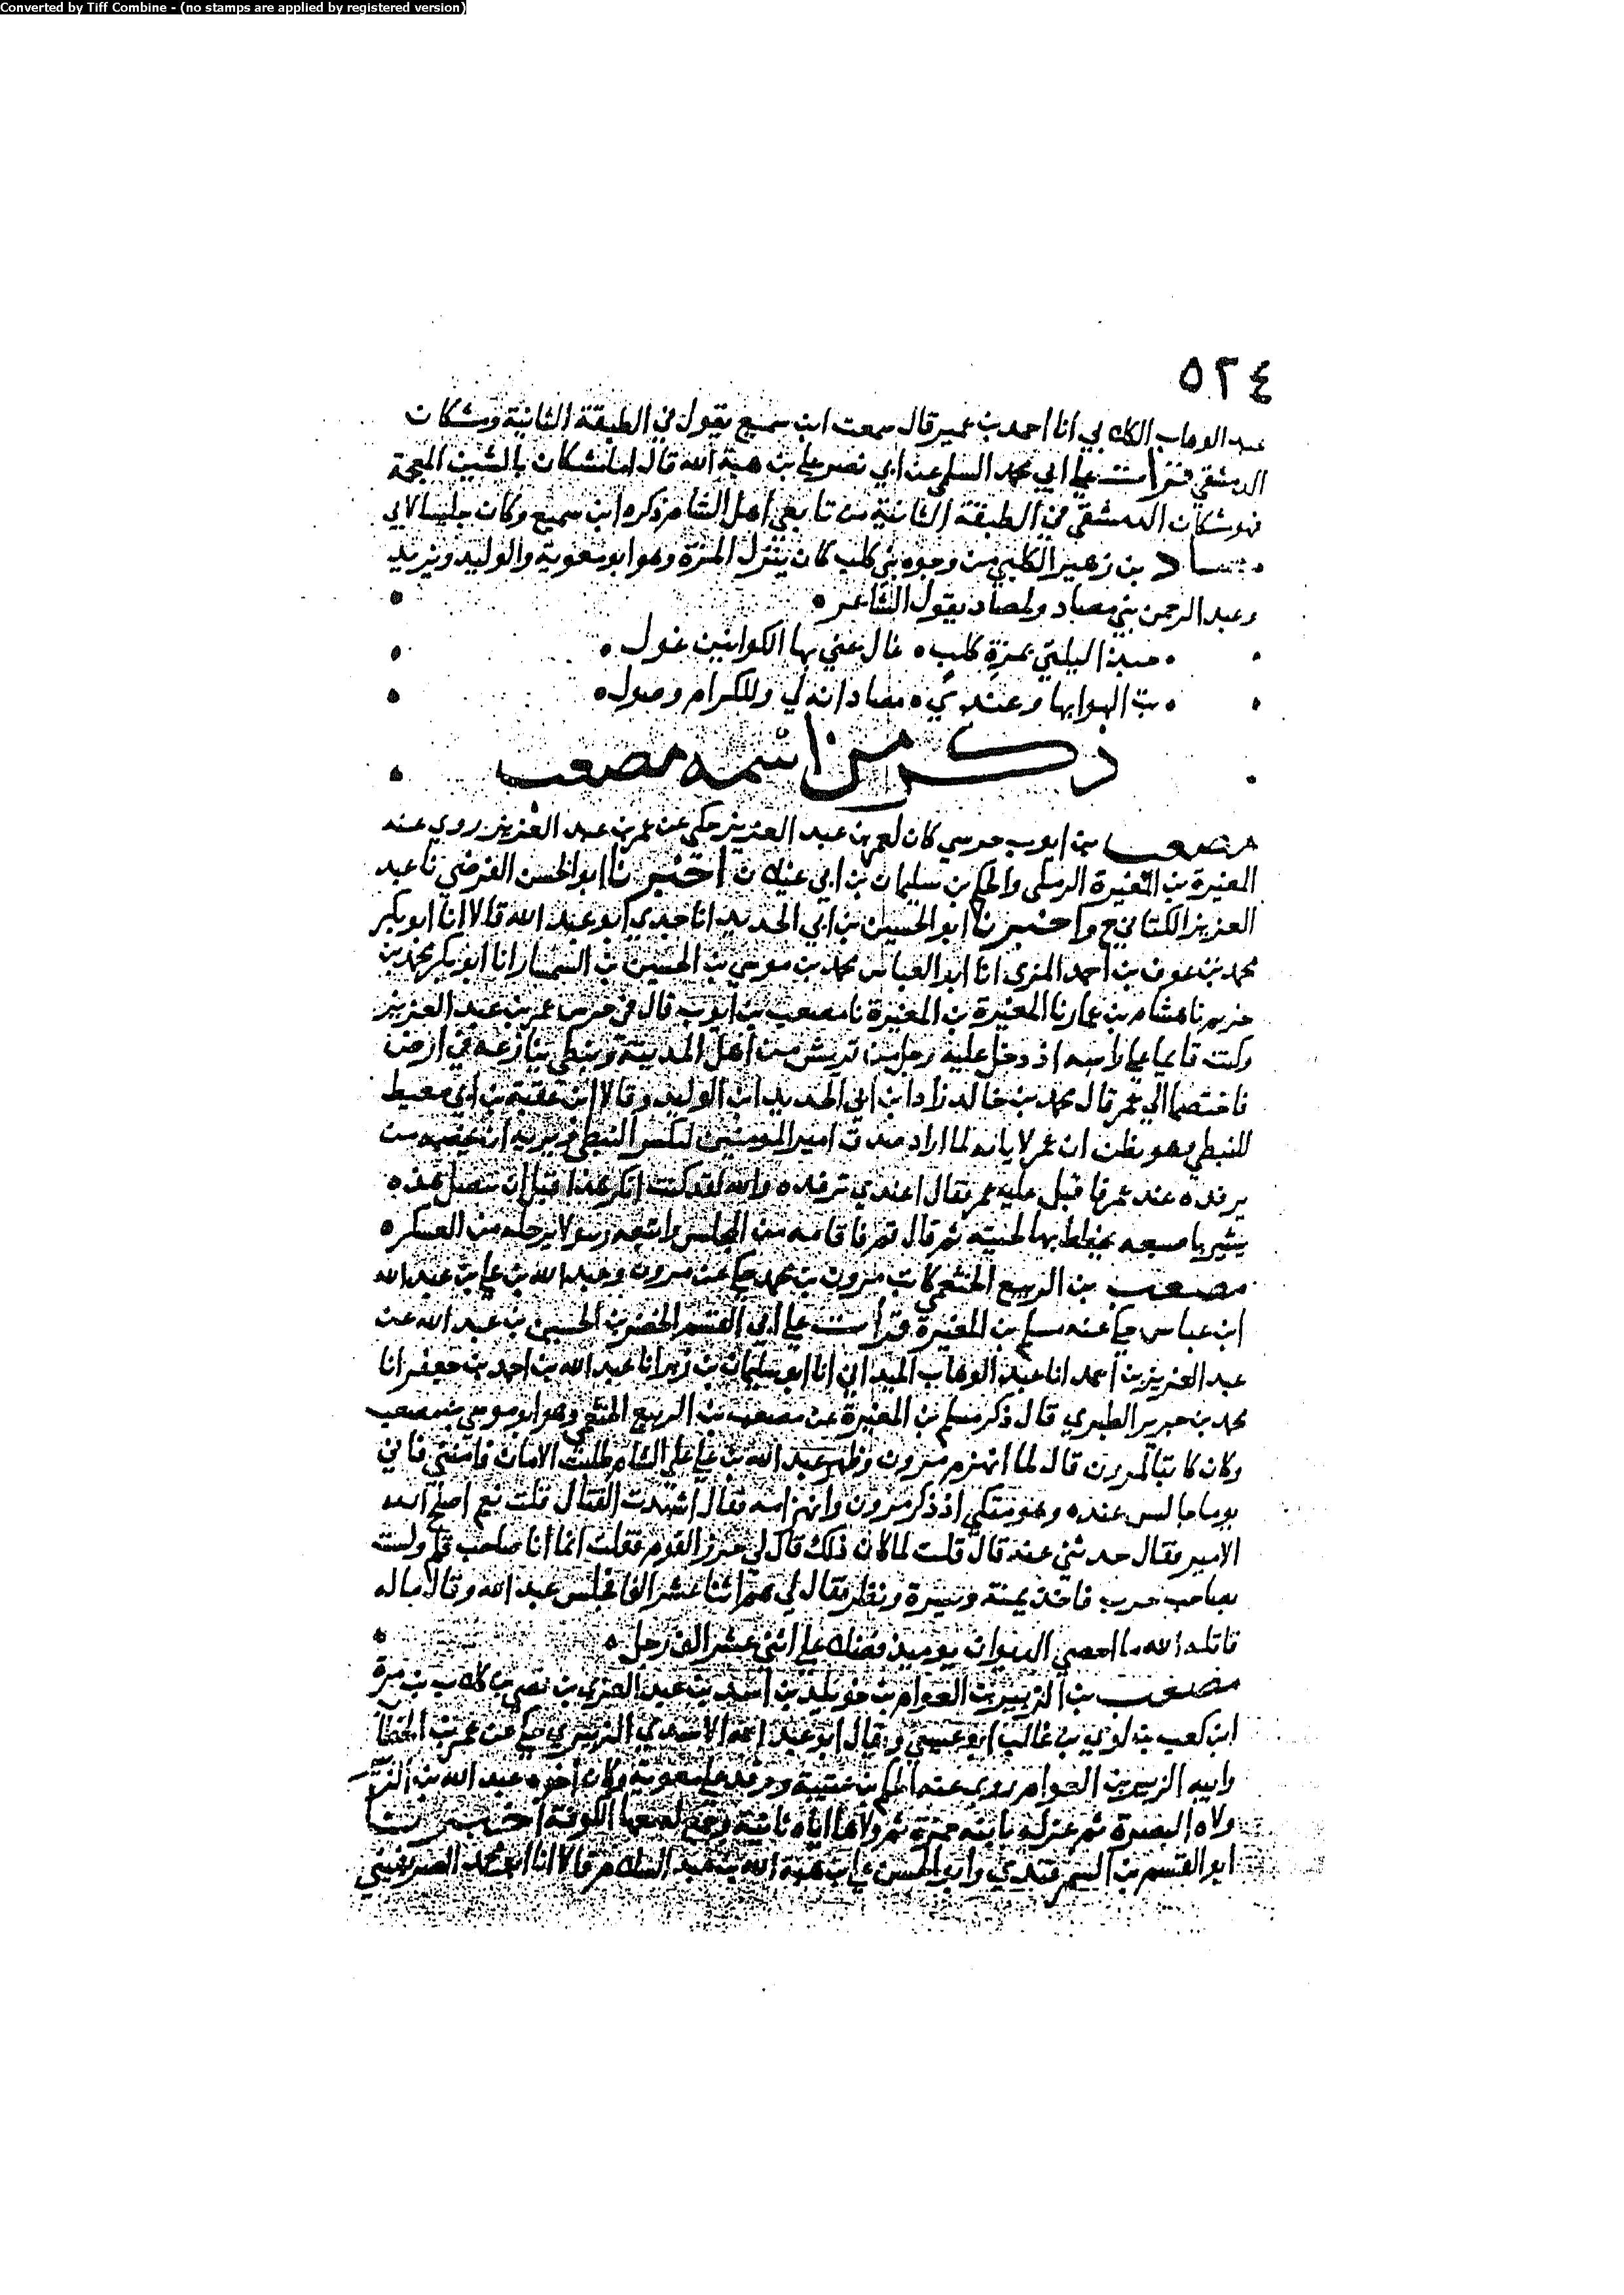 Converted by Tiff Combine - (no stamps are applied by registered version)
٥٢٤
عبد الوهاب الكلابي انا احمد بن عمير قال سمعت ابن سميع يقول في الطبقة الثانية ومشكان
الدمشقي قرأت علي ابي محمد السلمي عن ابي نصر علي بن هبة الله قال اما مشكان بالشين المعجمة
فهو مشكان الدمشقي من الطبقة الثانية من تابعي اهل الشام ذكره ابن سميع وكان جليسا لابي
مصاد بن زهير الكلبي من وجوه بني كلب كان ينزل المزة وهو ابو معوية والوليد ويزيد
وعبد الرحمن بني مصاد ولمصاد يقول الشاعر
حبذا ليلتي بمزة كلب غال عني بها الكوانين غول
بت الهوا بها وعندي مصاد انه لي وللكرام وصول
ذكر من اسمه مصعب
مصعب بن ايوب حرسي كان لعمر بن عبد العزيز حكي عن عمر بن عبد العزيز روي عنه
المغيرة بن المغيرة الرملي والحكم بن سليمان بن ابي غيلان اخبرنا ابو الحسن الفرضي نا عبد
العزيز الكتاني ح واخبرنا ابو الحسين بن ابي الحديد انا جدي ابو عبد الله قالا انا ابو بكر
محمد بن عوف بن احمد المزي انا ابو العباس محمد بن موسي بن الحسين بن السمسار انا ابو بكر محمد بن
خريم نا هشام بن عمار نا المغيرة بن المغيرة نا مصعب بن ايوب قال في حرس عمر بن عبد العزيز
وكنت قايما علي راسه اذ دخل عليه رجل من قريش من اهل المدينة ونبطي ينازعه في ارض
فاختصما الي عمر قال محمد بن خالد زاد ابن ابي الحديد ابن الوليد وقالا ابن عقبة بن ابي معيط
للنبطي وهو يظن ان عمر لا يابه لما اراد صدق امير المومنين لنكس النبطي يريد ان
يرفده عند عمر فاقبل عليه عمر فقال اعندي ترفده والله لقد كنت انكر هذا قبل ان تتصل هذه
يشير باصبعه لحيته ثم قال قم فاقامه من المجلس واتبعه رسولا يرحله من العسكر
مصعب بن الربيع الخثعمي كاتب مرون بن محمد حكي عن مرون وعبد الله بن علي بن عبد الله
ابن عباس حكي عنه مسلم بن المغيرة قرأت علي ابي القسم الخضر بن الحسين بن عبد الله عن
عبد العزيز بن احمد انا عبد الوهاب الميداني انا ابو سليمان بن زبر انا عبد الله بن احمد بن جعفر انا
محمد بن جرير الطبري قال ذكر مسلم بن المغيرة عن مصعب بن الربيع الخثعمي وهو ابو موسي بن مصعب
وكان كاتبا لمرون قال لما انهزم مرون وظهر عبد الله بن علي علي الشام طلبت الامان فامنني فاني
يوما جالس عنده وهو متكي اذ ذكر مرون وانهزامه فقال اشهدت القتال قلت نعم اصلح الله
الامير فقال حدثني عنه قال قلت لما كان ذلك قال لي احرز القوم فقلت انما انا صاحب قلم ولست
بصاحب حرب فاخذ يمنة ويسرة ونظر فقال لي هم اثنا عشر الفا فجلس عبد الله وقال ما له
قاتله الله ما احصي الديوان يوميذ فضلا علي اثني عشر الف رجل
مصعب بن الزبير بن العوام بن خويلد بن اسد بن عبد العزي بن قصي بن كلاب بن مرة
ابن كعب بن لوي بن غالب ابو عيسي ويقال ابو عبد الله الاسدي الزبيري حكي عن عمر بن الخطاب
وابيه الزبير بن العوام روي عنه الحكم بن عتيبة ووفد علي معوية وكان اخوه عبد الله بن الزبير
ولاه البصرة ثم عزله بابنه حمزة ثم ولاها اياه ثانية وجمع له معها الكوفة اخبرنا
ابو القسم بن السمرقندي وابو الحسن علي بن هبة الله بن عبد السلام قالا انا ابو محمد الصريفيني